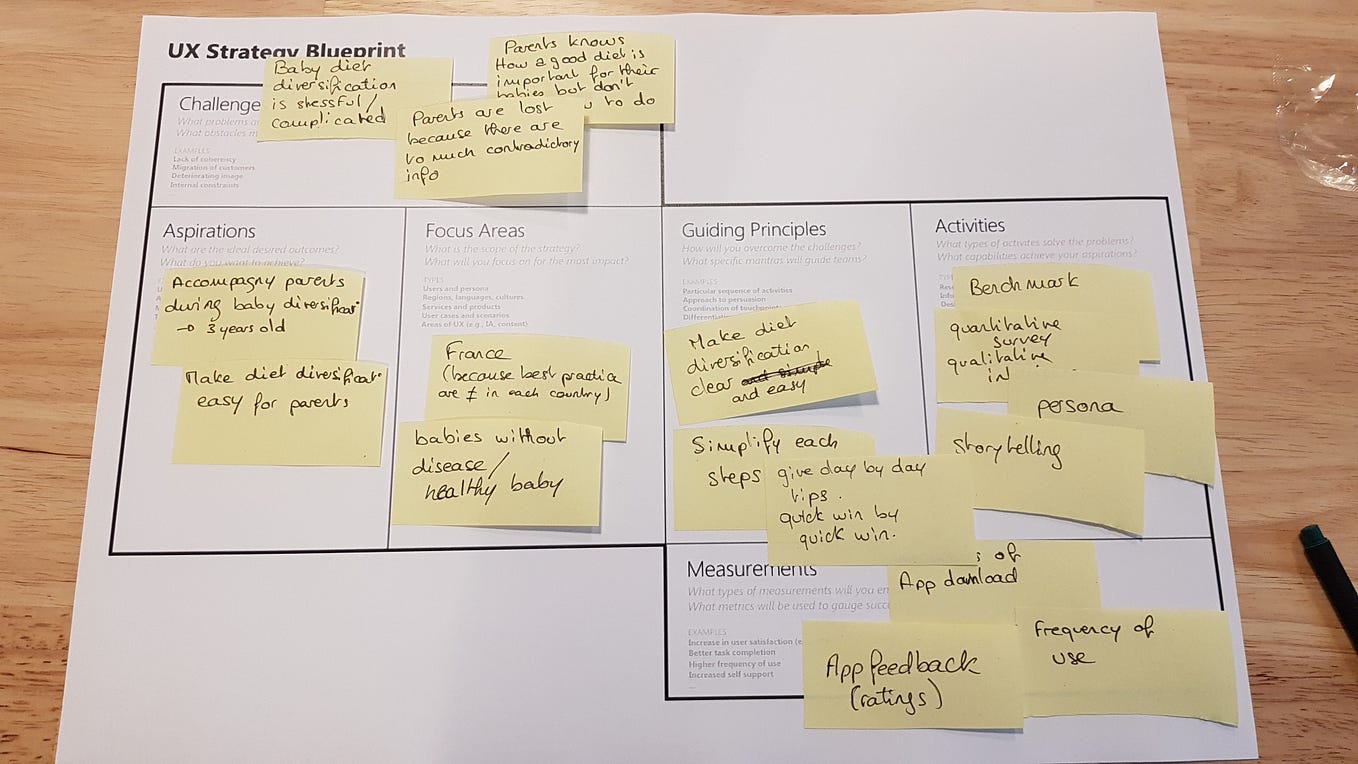 UX Strategy Blueprint
Challenge
What problems a
What obstacles m
EXAMPLES
Lack of coherency
Migration of customers
Deteriorating image
Internal constraints
Baby diet
diversification
is stessful/
complicated
Parents knows
How a good diet is
important for their
babies but don't
to do
Parents are lost
because there are
to much contradictory
info
Aspirations
What are the ideal desired outcomes?
What do you want to achieve?
Accompagny parents
during baby diversificat°
→ 3 years old
Make diet diversificat°
easy for parents
Focus Areas
What is the scope of the strategy?
What will you focus on for the most impact?
TYPES
Users and persona
Regions, languages, cultures
Services and products
User cases and scenarios
Areas of UX (e.g., IA, content)
France
(because best practice
are ≠ in each country)
babies without
disease/
healthy baby
Guiding Principles
How will you overcome the challenges?
What specific mantras will guide teams?
EXAMPLES
Particular sequence of activities
Approach to persuasion
Coordination of touchpoints
Differentiati
Make diet
diversification
clear and simple
and easy
Simplify each
steps
give day by day
tips.
quick win by
quick win.
Activities
What types of activites solve the problems?
What capabilities achieve your aspirations?
TYP
Rese
Info
Des
Benchmark
quantitative
survey
qualitative
in
persona
storytelling
Measurements
What types of measurements will you em
What metrics will be used to gauge succ
EXAMPLES
Increase in user satisfaction (e
Better task completion
Higher frequency of use
Increased self support
...
s of
App download
App feedback
(ratings)
Frequency of
use